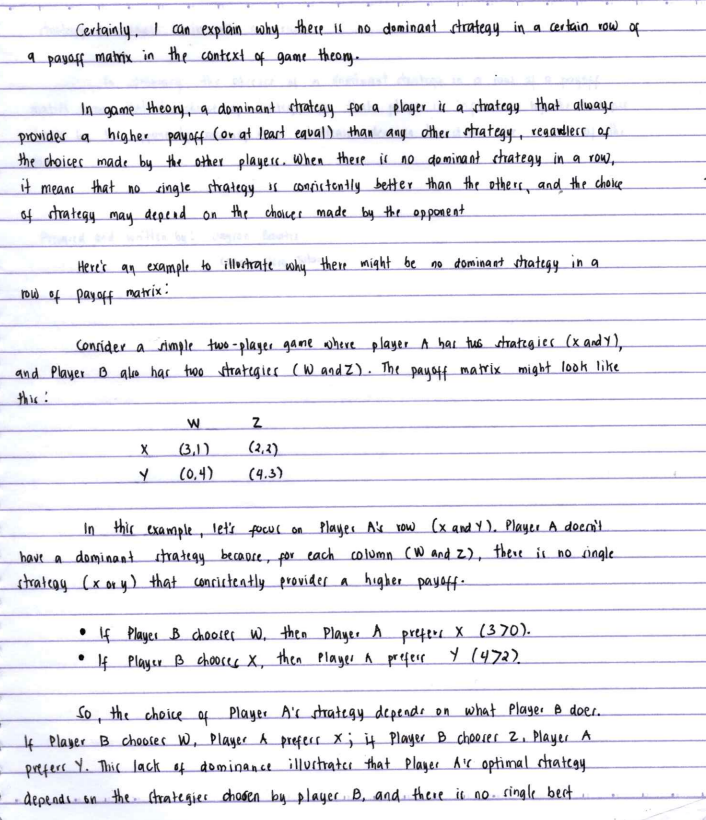 Certainly, I can explain why there is no dominant strategy in a certain row of
a payoff matrix in the context of game theory.
In game theory, a dominant strategy for a player is a strategy that always
provides a higher payoff (or at least equal) than any other strategy, regardless of
the choices made by the other players. When there is no dominant strategy in a row,
it means that no single strategy is consistently better than the others, and the choice
of strategy may depend on the choices made by the opponent
Here's an example to illustrate why there might be no dominant strategy in a
row of payoff matrix:
Consider a simple two-player game where player A has two strategies (x and Y),
and Player B also has two strategies (W and Z). The payoff matrix might look like
this:
W Z
X (3,1) (2,2)
Y (0,4) (4.3)
In this example, let's focus on Player A's row (x and Y). Player A doesn't
have a dominant strategy because, for each column (W and Z), there is no single
strategy (x or y) that consistently provides a higher payoff.
• If Player B chooses W, then Player A prefers X (3>0).
• If Player B chooses X, then Player A prefers Y (4>2).
So, the choice of Player A's strategy depends on what Player B does.
If Player B chooses W, Player A prefers X; if Player B chooses Z, Player A
prefers Y. This lack of dominance illustrates that Player A's optimal strategy
depends on the strategies chosen by player B, and there is no single best